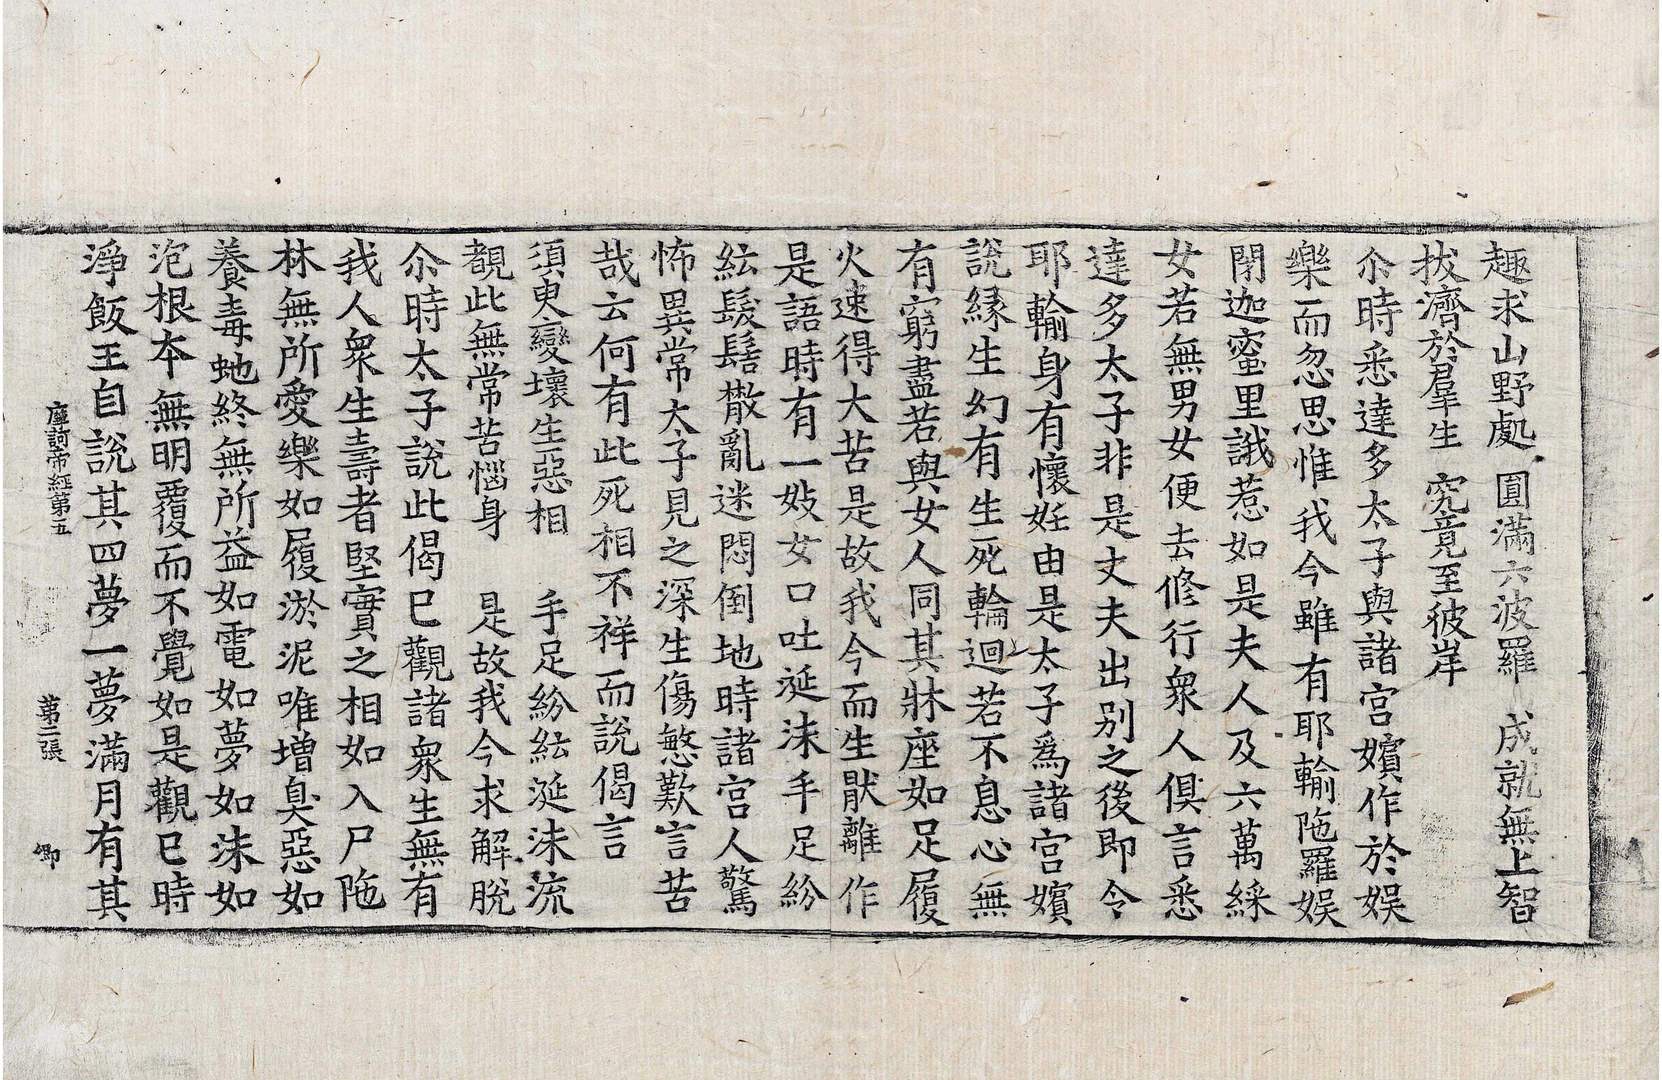 趣求山野處　圓滿六波羅　成就無上智
拔濟於羣生　究竟至彼岸
尒時悉達多太子與諸宮嬪作於娛
樂而忽思惟我今雖有耶輸陁羅娛
閉迦蜜里誐惹如是夫人及六萬綵
女若無男女便去修行衆人俱言悉
達多太子非是丈夫出别之後即令
耶輸身有懷妊由是太子爲諸宮嬪
說緣生幻有生死輪迴若不息心無
有窮盡若與女人同其牀座如足履
火速得大苦是故我今而生猒離作
是語時有一妓女口吐涎沬手足紛
紜髮髻撒亂迷悶倒地時諸宮人驚
怖異常太子見之深生傷慜歎言苦
哉云何有此死相不祥而說偈言
須臾變壞生惡相　手足紛紜涎沬流
覩此無常苦惱身　是故我今求解脫
尒時太子說此偈已觀諸衆生無有
我人衆生壽者堅實之相如入尸陁
林無所愛樂如履淤泥唯增臭惡如
養毒虵終無所益如電如夢如沬如
泡根本無明覆而不覺如是觀已時
淨飯王自說其四夢一夢滿月有其
摩訶帝經第五　第二張　卿